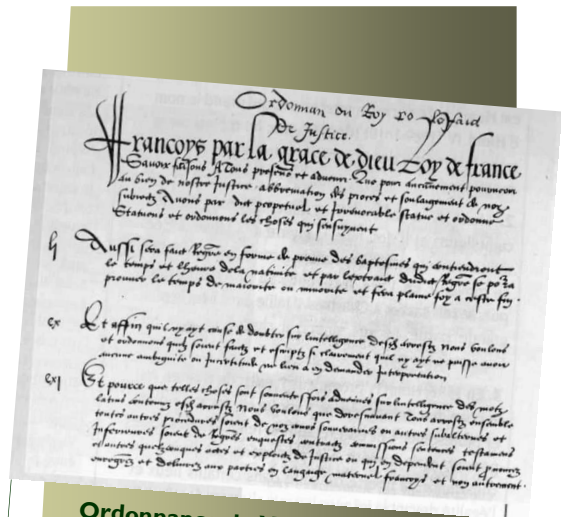 Ordonnan du Roy
De Justice
Francoys par la grace de dieu Roy de france
Savoir faisons A Tous presens et advenir Que pour aucunement pourveoir
au bien de nostre Justice abbreviation des proces et soulagement de noz
subiectz Avons par edit perpetuel et Irrevocable statue et ordonne
Statuons et ordonnons les choses qui sensuyvent
lj Aussi sera faict Regre en forme de preuve des baptesmes qui contiendront
le temps et lheure dela nativite et par lextraict dudict Regre se pora
prouver le temps de maiorite ou minorite et fera plaine foy a ceste fin
cx Et affin quil ny ayt cause de doubter sur lintelligence desdz arrestz Nous voulons
et ordonnons quilz soient faictz et escriptz si clairement quil ny ayt ne puisse avoir
aucune ambiguite ou Incertitude ne lieu a en demander Interpretation
cxj Et pource que telles choses sont souventesfois advenues sur lintelligence des motz
latins contenuz esdz arrestz Nous voulons que doresnavant Tous arrestz ensemble
toutes autres procedures soient de noz cours souveraines ou autres subalternes et
Inferieures soient de Regres enquestes contractz commissions sentences testamens
et autres quelzconques actes et exploictz de Justice ou qui en dependent soient prononcez
enregrez et delivrez aux parties en langage maternel francoys et non autrement